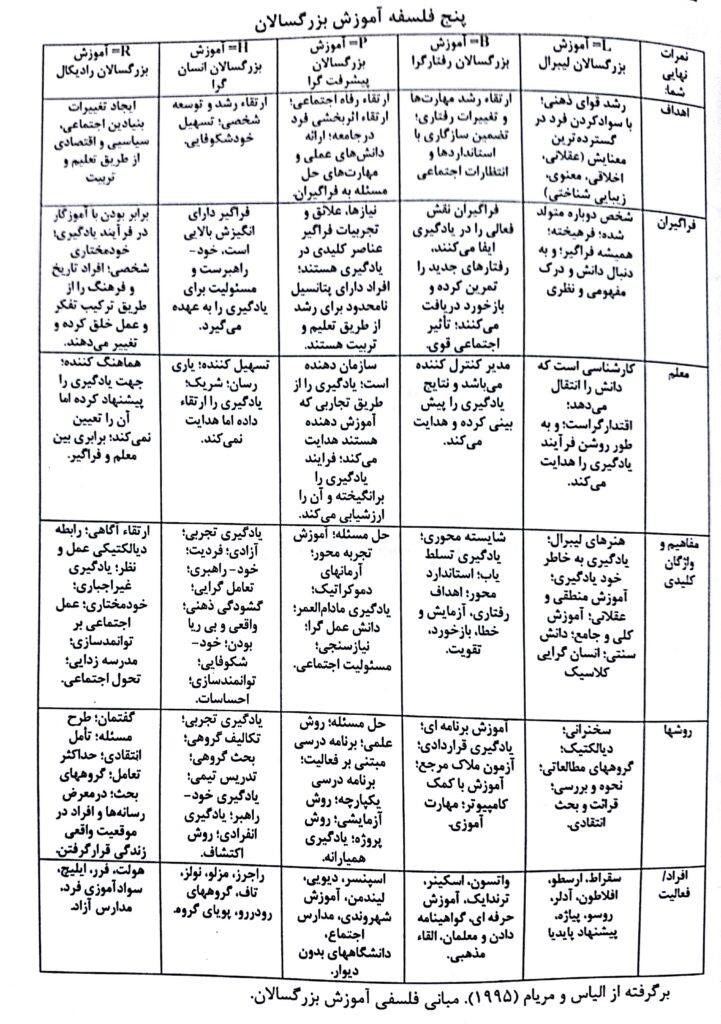 پنج فلسفه آموزش بزرگسالان
نمرات
نهایی
شما:
L= آموزش
بزرگسالان لیبرال
B= آموزش
بزرگسالان رفتارگرا
P= آموزش
بزرگسالان
پیشرفت گرا
H= آموزش
بزرگسالان انسان
گرا
R= آموزش
بزرگسالان رادیکال
اهداف
رشد قوای ذهنی؛
با سوادکردن فرد در
گسترده‌ترین
معنایش (عقلانی،
اخلاقی، معنوی،
زیبایی شناختی)
ارتقاء رشد مهارت‌ها
و تغییرات رفتاری؛
تضمین سازگاری با
استانداردها و
انتظارات اجتماعی
ارتقاء رفاه اجتماعی؛
ارتقاء اثربخشی فرد
درجامعه؛ ارائه
دانش‌های عملی و
مهارت‌های حل
مسئله به فراگیران.
ارتقاء رشد و توسعه
شخصی؛ تسهیل
خودشکوفایی.
ایجاد تغییرات
بنیادین اجتماعی،
سیاسیی و اقتصادی
از طریق تعلیم و
تربیت
فراگیران
شخص دوباره متولد
شده؛ فرهیخته؛
همیشه فراگیر؛ و به
دنبال دانش و درک
مفهومی و نظری
فراگیران نقش
فعالی را در یادگیری
ایفا می‌کنند،
رفتارهای جدید را
تمرین کرده و
بازخورد دریافت
می‌کنند؛ تأثیر
اجتماعی قوی.
نیازها، علائق و
تجربیات فراگیر
عناصر کلیدی در
یادگیری هستند؛
افراد دارای پتانسیل
نامحدود برای رشد
از طریق تعلیم و
تربیت هستند.
فراگیر دارای
انگیزش بالایی
است، خود-
راهبرست و
مسئولیت برای
یادگیری را به عهده
می‌گیرد.
برابر بودن با آموزگار
در فرآیند یادگیری؛
خودمختاری
شخصی؛ افراد تاریخ
و فرهنگ را از
طریق ترکیب تفکر
و عمل خلق کرده و
تغییر می‌دهند.
معلم
کارشناسی است که
دانش را انتقال
می‌دهد؛
اقتدارگراست؛ و به
طور روشن فرآیند
یادگیری را هدایت
می‌کند.
مدیر کنترل کننده
می‌باشد و نتایج
یادگیری را پیش
بینی کرده و هدایت
می‌کند.
سازمان دهنده
است؛ یادگیری را از
طریق تجاربی که
آموزش دهنده
هستند هدایت
می‌کند؛ فرایند
یادگیری را
برانگیخته و آن را
ارزشیابی می‌کند.
تسهیل کننده؛ یاری
رسان؛ شریک؛
یادگیری را ارتقاء
داده اما هدایت
نمی‌کند.
هماهنگ کننده؛
جهت یادگیری را
پیشنهاد کرده اما
آن را تعیین
نمی‌کند؛ برابری بین
معلم و فراگیر.
مفاهیم و
واژگان
کلیدی
هنرهای لیبرال؛
یادگیری به خاطر
خود یادگیری؛
آموزش منطقی و
عقلانی؛ آموزش
کلی و جامع؛ دانش
سنتی؛ انسان گرایی
کلاسیک
شایسته محوری؛
یادگیری تسلط
یاب؛ استاندارد
محور؛ اهداف
رفتاری، آزمایش و
خطا، بازخورد،
تقویت.
حل مسئله؛ آموزش
تجربه محور؛
آرمانهای
دموکراتیک؛
یادگیری مادام‌العمر؛
دانش عمل گرا؛
نیازسنجی؛
مسئولیت اجتماعی.
یادگیری تجربی؛
آزادی؛ فردیت؛
خود- راهبری؛
تعامل گرایی؛
گشودگی ذهنی؛
واقعی و بی ریا
بودن؛ خود-
شکوفایی؛
توانمندسازی؛
احساسات.
ارتقاء آگاهی؛ رابطه
دیالکتیکی عمل و
نظر؛ یادگیری
غیراجباری؛
خودمختاری؛ عمل
اجتماعی بر
توانمندسازی؛
مدرسه زدایی؛
تحول اجتماعی.
روشها
سخنرانی؛
دیالکتیک؛
گروههای مطالعاتی؛
نحوه و بررسی؛
قرائت و بحث
انتقادی.
آموزش برنامه ای؛
یادگیری قراردادی؛
آزمون ملاک مرجع؛
آموزش با کمک
کامپیوتر؛ مهارت
آموزی.
حل مسئله؛ روش
علمی؛ برنامه درسی
مبتنی بر فعالیت؛
برنامه درسی
یکپارچه؛ روش
آزمایشی؛ روش
پروژه؛ یادگیری
همیارانه.
یادگیری تجربی؛
تکالیف گروهی؛
بحث گروهی؛
تدریس تیمی؛
یادگیری خود-
راهبر؛ یادگیری
انفرادی؛ روش
اکتشاف.
گفتمان؛ طرح
مسئله؛ تأمل
انتقادی؛ حداکثر
تعامل؛ گروههای
بحث؛ درمعرض
رسانه‌ها و افراد در
موقعیت واقعی
زندگی قرارگرفتن.
افراد/
فعالیت
سقراط، ارسطو،
افلاطون، آدلر،
روسو، پیاژه،
پیشنهاد پایدیا
واتسون، اسکینر،
ترندایک، آموزش
حرفه ای، گواهینامه
دادن و معلمان، القاء
مذهبی.
اسپنسر، دیویی،
لیندمن، آموزش
شهروندی، مدارس
اجتماع،
دانشگاههای بدون
دیوار.
راجرز، مزلو، نولز،
تاف، گروههای
رودررو، پویای گروه.
هولت، فرر، ایلیچ،
سوادآموزی فرد،
مدارس آزاد.
برگرفته از الیاس و مریام (۱۹۹۵). مبانی فلسفی آموزش بزرگسالان.